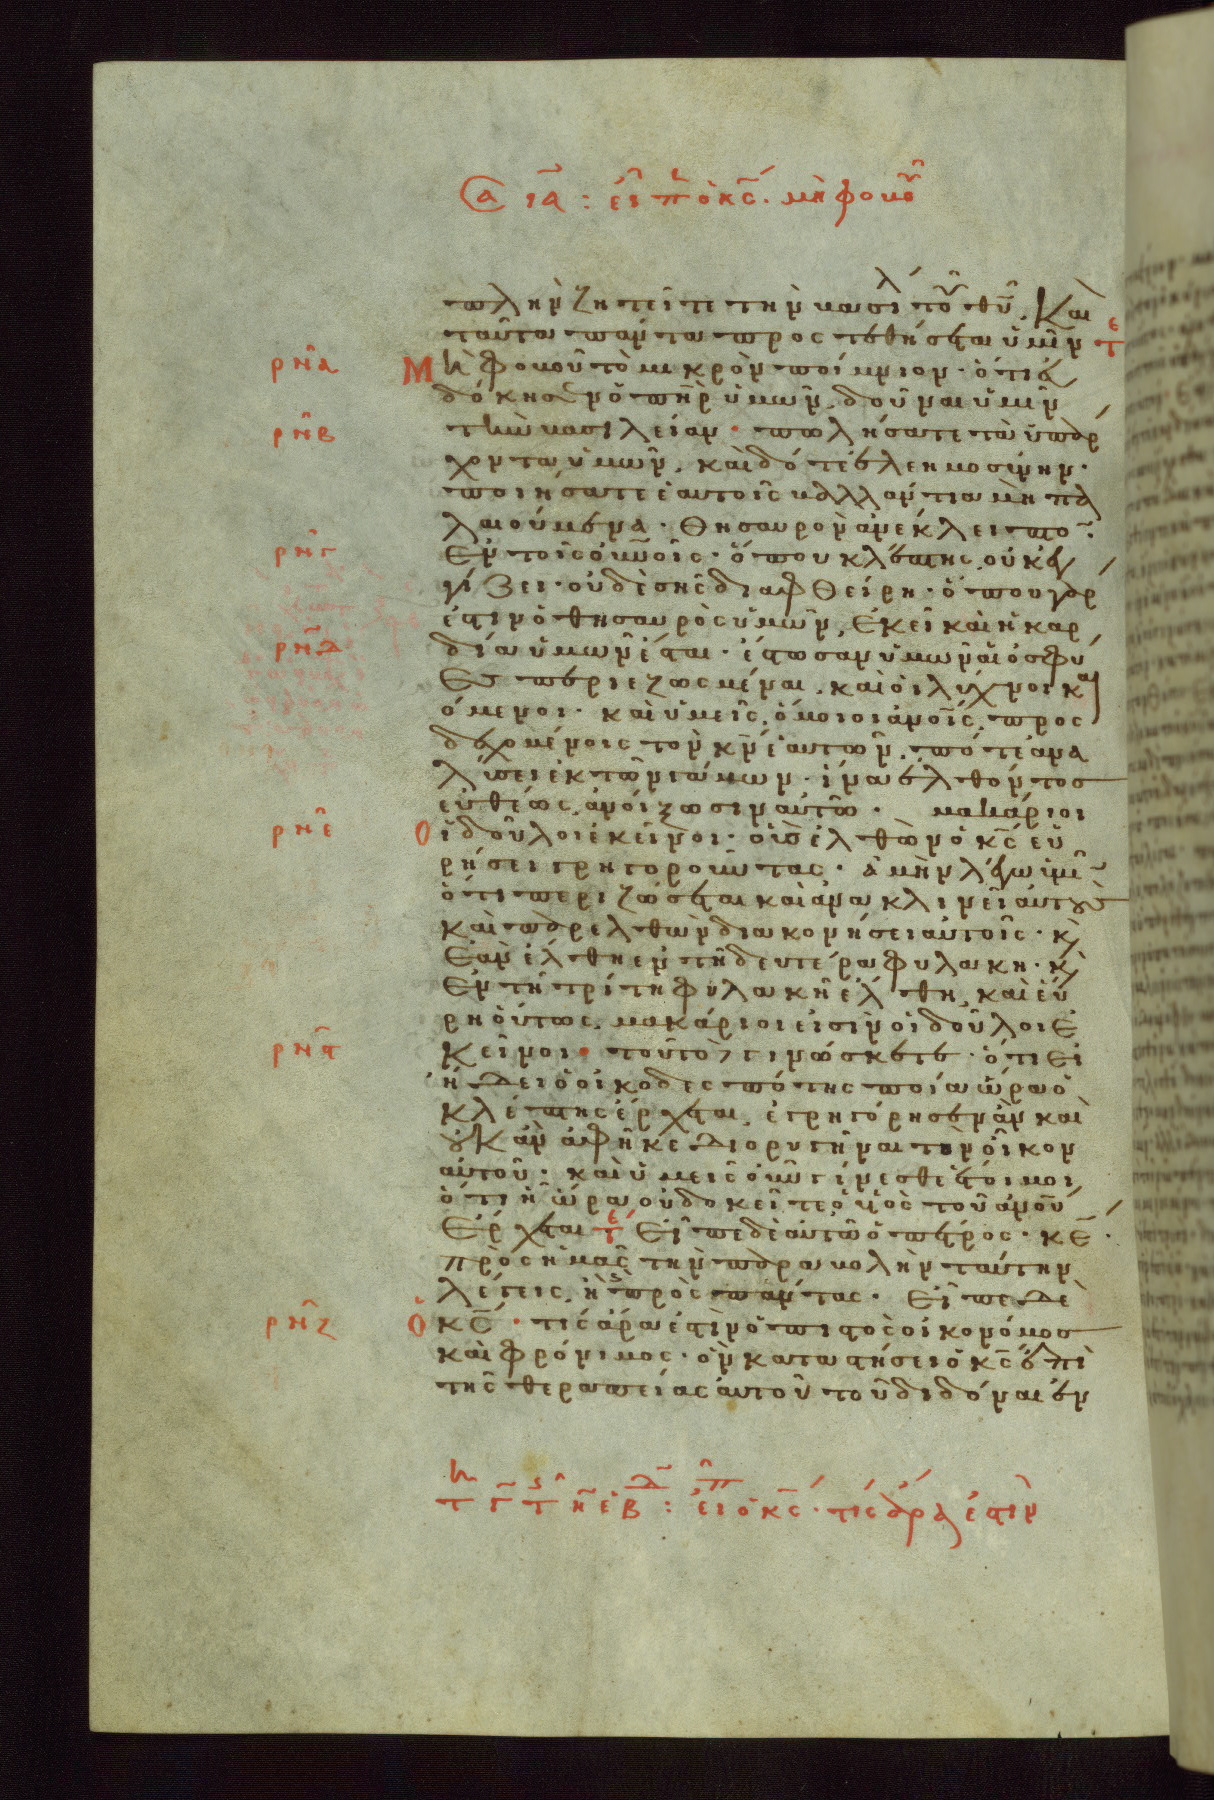 Σα ια : εἶπ ὁ κς. μὴ φοβοῦ
πλὴν ζητεῖτε τὴν βασιλ τοῦ θυ. Καὶ
ταῦτα πάντα προστεθήσεται ὑμῖν τε
ρνα Μὴ φοβοῦ τὸ μικρὸν ποίμνιον· ὅτι εὐ
δόκησεν ὁ πηρ ὑμῶν, δοῦναι ὑμῖν
ρνβ τὴν βασιλείαν· πωλήσατε τὰ ὑπάρ
χοντα ὑμῶν, καὶ δότε ἐλεημοσύνην·
ποιήσατε ἑαυτοῖς βαλλάντια μὴ πα
λαιούμενα· θησαυρὸν ἀνέκλειπτο
ρνγ ἐν τοῖς οὐνοῖς· ὅπου κλέπτης οὐκ ἐγ
γίζει· οὐδὲ σὴς διαφθείρη· ὅπου γάρ
ἐστιν ὁ θησαυρὸς ὑμῶν, ἐκεῖ καὶ ἡ καρ
ρνδ δία ὑμῶν ἔσται· ἔστωσαν ὑμῶν αἱ ὀσφύ
ες περιεζωσμέναι, καὶ οἱ λύχνοι και
όμενοι· καὶ ὑμεῖς, ὅμοιοι ἀνοῖς, προσ
δεχομένοις τὸν κν ἑαυτῶν, πότε ἀνα
λύσει ἐκ τῶν γάμων· ἵνα ἐλθόντος
εὐθέως ἀνοίξωσιν αὐτῶ· μακάριοι
ρνε οἱ δοῦλοι ἐκεῖνοι· οὓς ἐλθὼν ὁ κς εὑ
ρήσει γρηγοροῦντας· ἀμὴν λέγω ὑμῖ
ὅτι περιζώσεται καὶ ἀνακλινεῖ αὐτοὺς
καὶ παρελθὼν διακονήσει αὐτοῖς· κὶ
ἐὰν ἔλθη ἐν τῆ δευτέρα φυλακῆ· κὶ
ἐν τῆ τρίτη φυλακῆ ἔλθη, καὶ εὕ
ρη οὕτως, μακάριοι εἰσὶν οἱ δοῦλοι ἐ
ρνς κεῖνοι· τοῦτο γινώσκετε· ὅτι εἰ
ἤδει ὁ οἰκοδεσπότης ποία ὥρα ὁ
κλέπτης ἔρχεται, ἐγρηγόρησεν ἂν καὶ
οὐκ ἂν ἀφῆκε διορυγῆναι τὸν οἶκον
αὐτοῦ· καὶ ὑμεῖς οὖν γίνεσθε ἕτοιμοι
ὅτι ἧ ὥρα οὐ δοκεῖτε ὁ υἱὸς τοῦ ἀνου
ἔρχεται τε Εἶπε δὲ αὐτῶ ὁ πέτρος· κε·
πρὸς ἡμᾶς τὴν παραβολὴν ταύτην
λέγεις, ἢ πρὸς πάντας· Εἶπε δὲ
ρνζ ὁ κς· τίς ἄρα ἐστὶν ὁ πιστὸς οἰκονόμος
καὶ φρόνιμος· ὃν καταστήσει ὁ κς ἐπὶ
τῆς θεραπείας αὐτοῦ τοῦ διδόναι ἐν
τη γ τς η εβδ : εἶπ ὁ κς· τίς ἄρα ἐστὶν